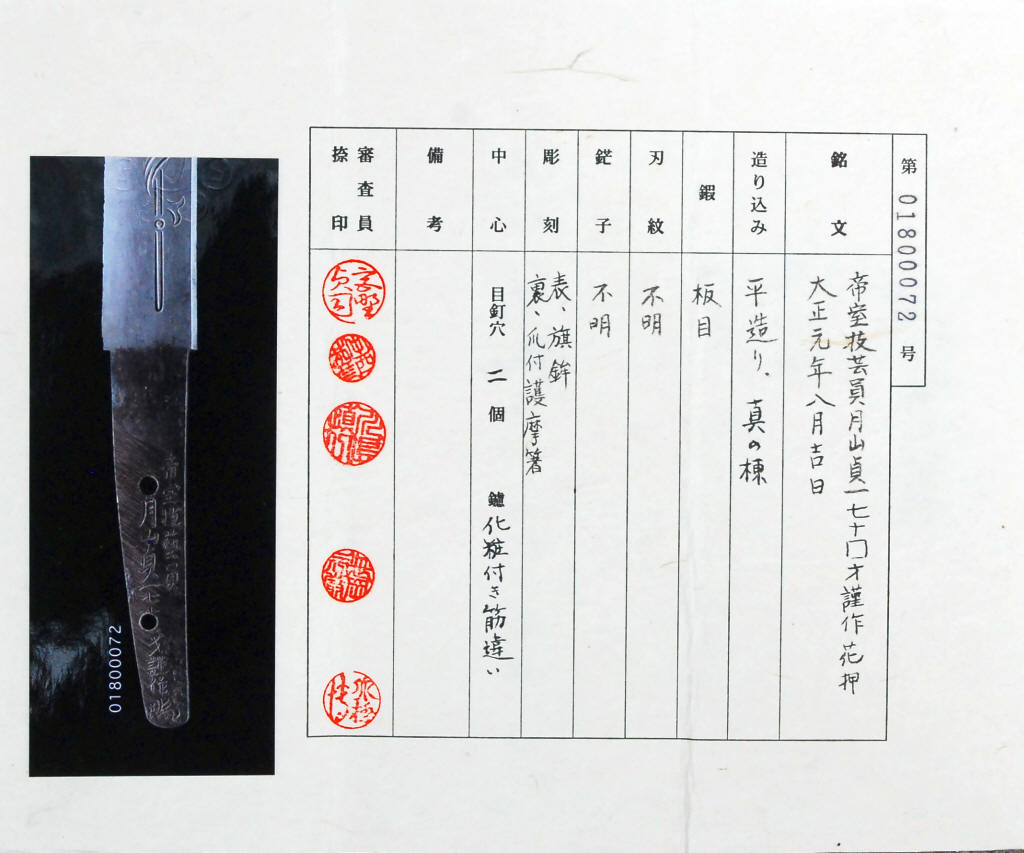 第 01800072 号
銘文
帝室技芸員月山貞一七十□才謹作花押
大正元年八月吉日
造り込み
平造り、真の棟
鍜
板目
刃紋
不明
鋩子
不明
彫刻
表、旗鉾
裏、爪付護摩箸
中心
目釘穴 二 個 鑢 化粧付き筋違い
備考
審査員
捺印
帝室技藝員
月山貞一七十
才謹作
01800072